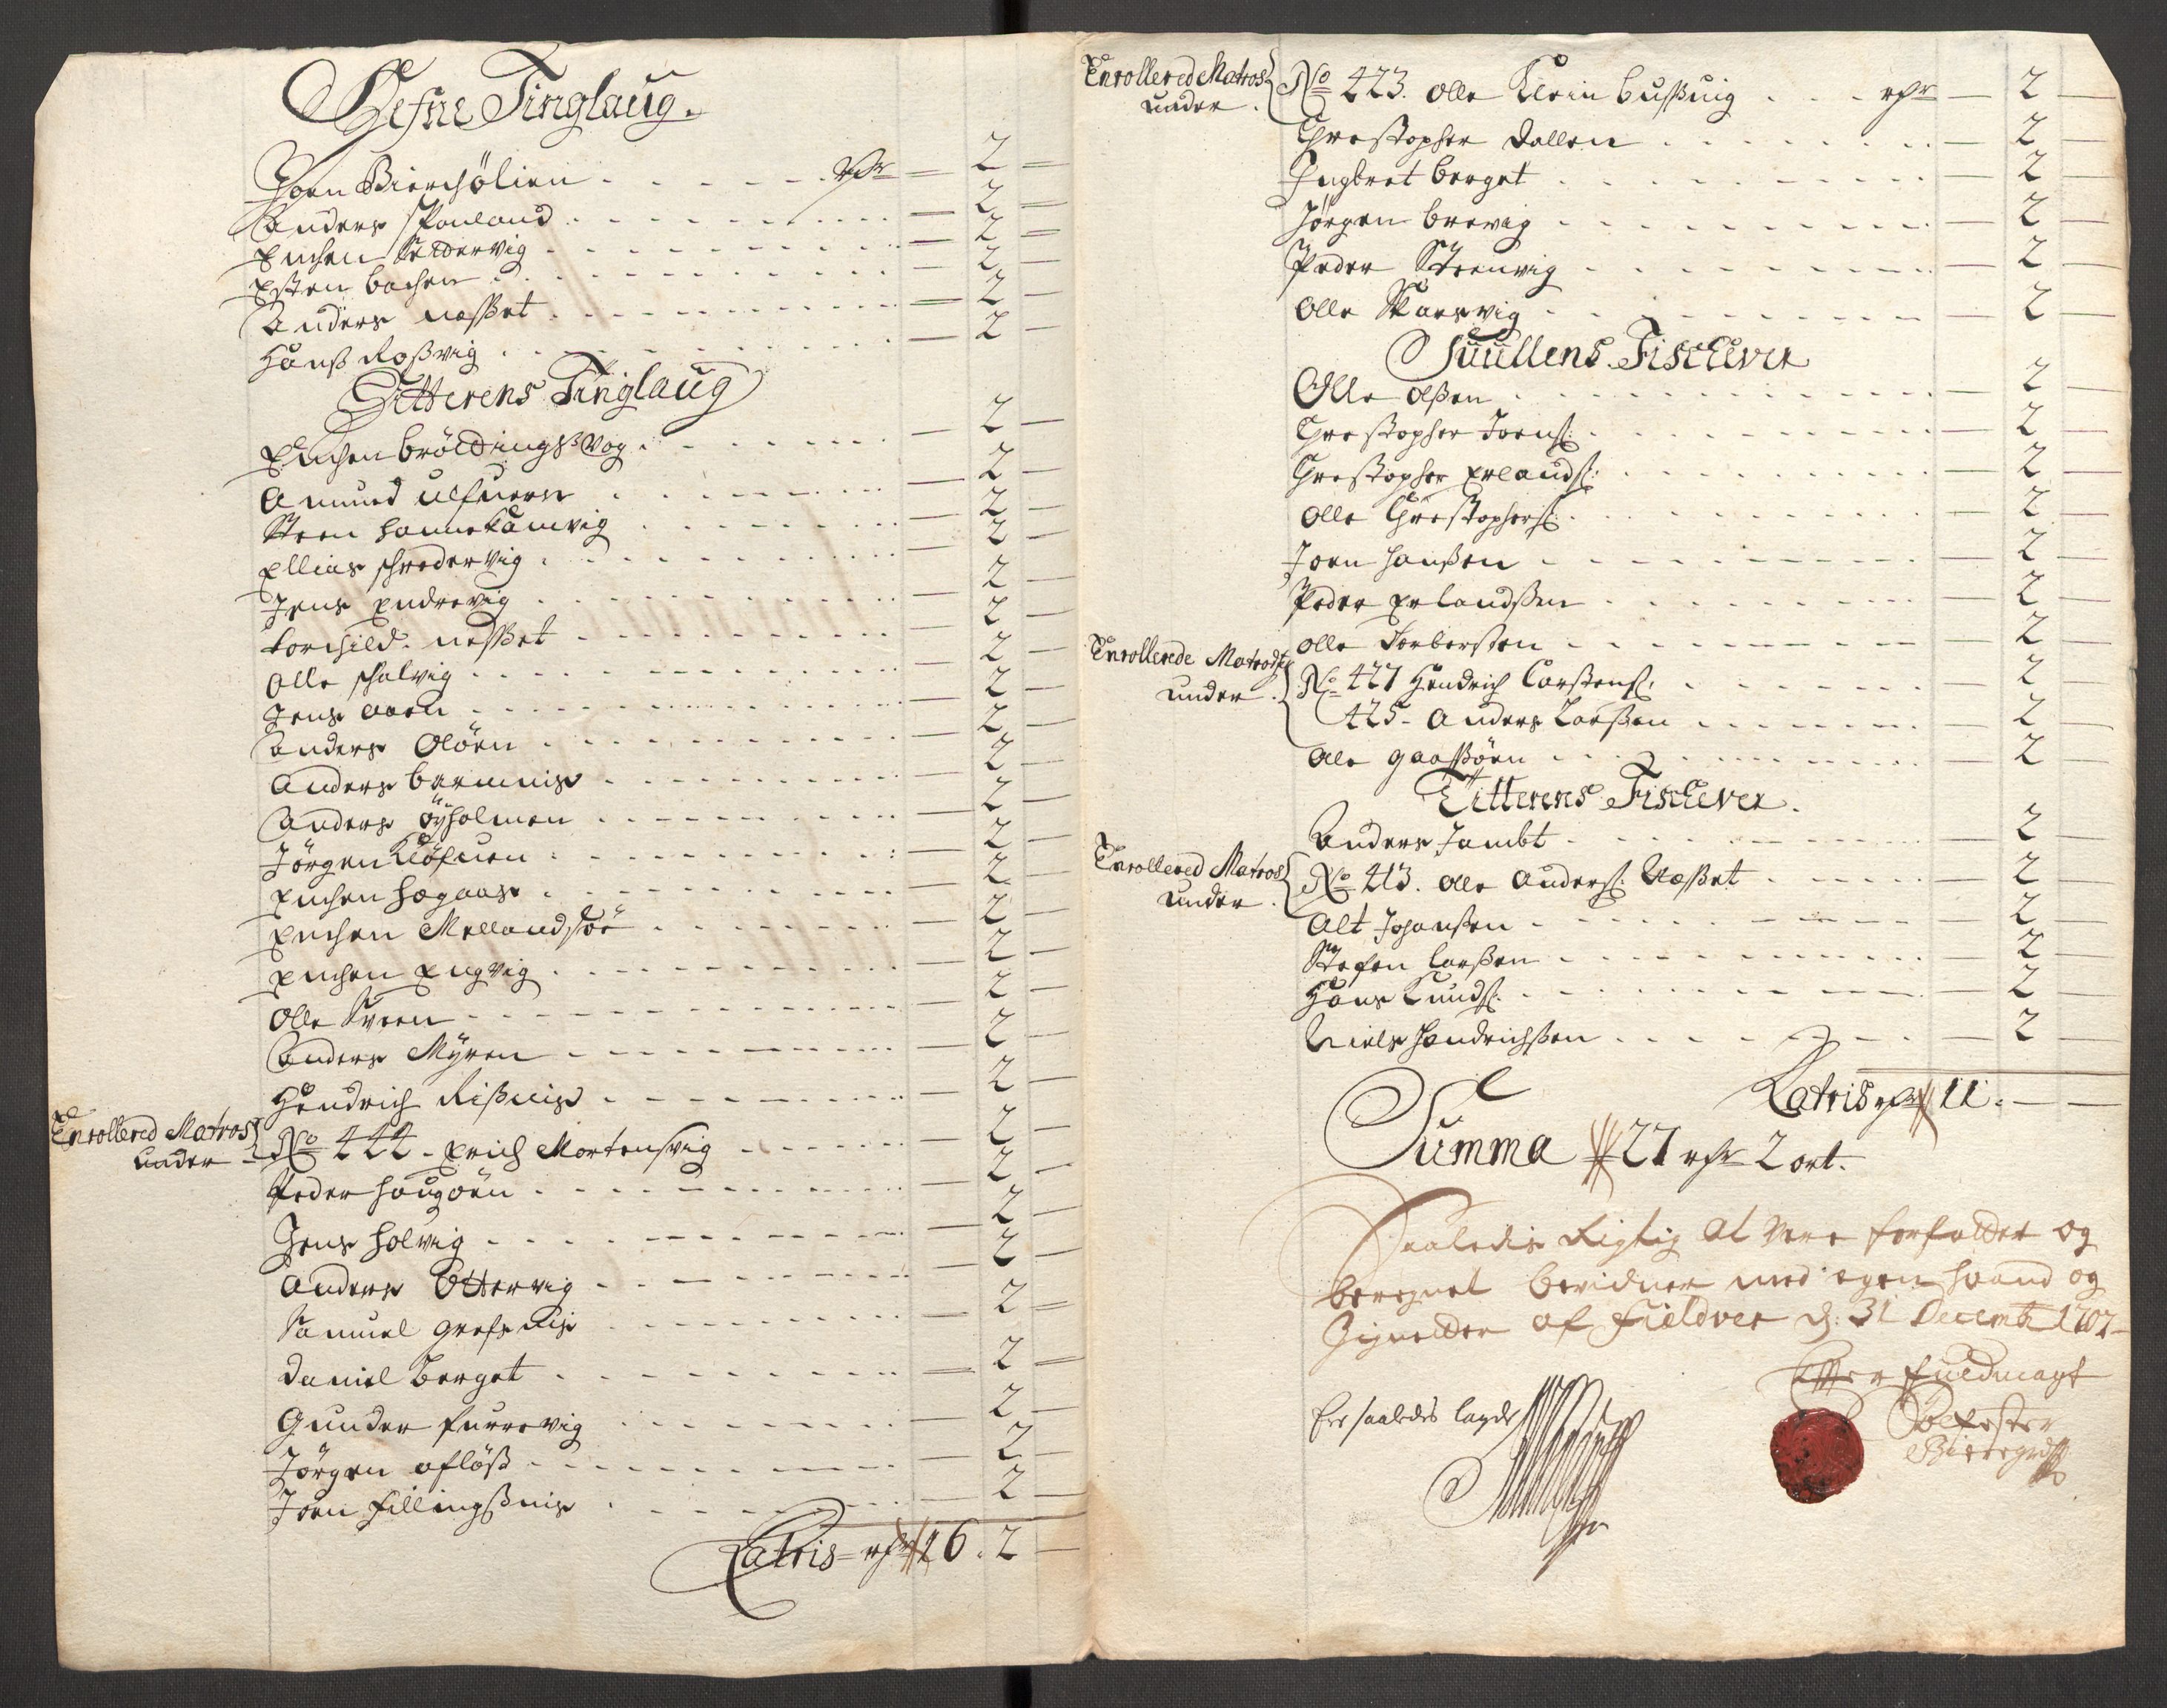 Hefne Tinglaug.
Joen Bierchölien . . . . . . rdr — 2 —
Anders Spouland . . . . . . — 2 —
Enchen Beldervig . . . . . . — 2 —
Esten bachen . . . . . . — 2 —
Anders nesset . . . . . . — 2 —
Hans Rossvig . . . . . . — 2 —
Hitterens Tinglaug
Enchen bröldingssvog . . . . . . — 2 —
Amund Ulfness . . . . . . — 2 —
Steen hannekamvig . . . . . . — 2 —
Ellias schredervig . . . . . . — 2 —
Jens Endrevig . . . . . . — 2 —
Torchild nesset . . . . . . — 2 —
Olle schalvig . . . . . . — 2 —
Jens aaen . . . . . . — 2 —
Anders Oloen . . . . . . — 2 —
Anders bremnis . . . . . . — 2 —
Anders öÿholmen . . . . . . — 2 —
Jörgen Klöfuen . . . . . . — 2 —
Enchen hogaas . . . . . . — 2 —
Enchen Mellandsöe . . . . . . — 2 —
Enchen Engvig . . . . . . — 2 —
Olle Sveen . . . . . . — 2 —
Anders Mÿren . . . . . . — 2 —
Hendrich Rissnis . . . . . . — 2 —
Enrollered Matros under No 444. Erich Mortensvig . . . — 2 —
Peder haugoen . . . . . . — 2 —
Jens holvig . . . . . . — 2 —
Anders Ottervig . . . . . . — 2 —
Samuel grefsnis . . . . . . — 2 —
Daniel berget . . . . . . — 2 —
Gunder furrevig . . . . . . — 2 —
Jörgen aflöss . . . . . . — 2 —
Joen fillingssnis . . . . . . — 2 —
Latris rdr 16. 2 —
Enrollered Matros under No 423. Olle Klein bussvig . . . rdr — 2 —
Christopher dallen . . . . . . — 2 —
Ingbret berget . . . . . . — 2 —
Jörgen brevig . . . . . . — 2 —
Peder Steenvig . . . . . . — 2 —
Olle Skarsvig . . . . . . — 2 —
Suullens Fischever
Olle olssen . . . . . . — 2 —
Christopher Joens: . . . . . . — 2 —
Christopher Erlands: . . . . . . — 2 —
Olle Christophers: . . . . . . — 2 —
Joen hanssen . . . . . . — 2 —
Peder Erlandssen . . . . . . — 2 —
Olle Torbersten . . . . . . — 2 —
Enrollerede Matrodser under No 427 Hendrich Carstens: . . . . . . — 2 —
425. Anders Larssen . . . . . . — 2 —
Ole gaassöen . . . . . . — 2 —
Hitterens Fischever.
Anders Jambt . . . . . . — 2 —
Enrollered Matros under No 413. Olle Anders: Nesset . . . . . . — 2 —
Alt Johanssen . . . . . . — 2 —
Stefen larssen . . . . . . — 2 —
Hans Knuds: . . . . . . — 2 —
Niels Hendrichssen . . . . . . — 2 —
Latris rdr 11. — —
Summa 27 rdr 2 ort.
Saaledis Rigtig at være forfattet og
beregnet bevidner med egen haand og
Zignetter af Fieldver d: 31 Decemb 1707
Efter fuldmagt
Er saaledes lagde